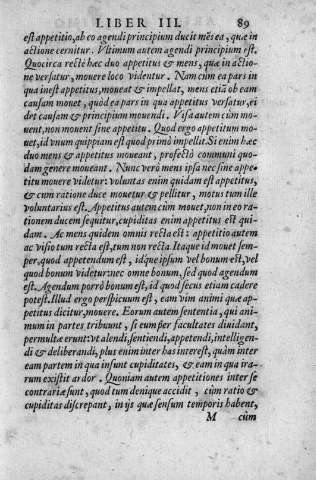 LIBER III. 89
est appetitio, ab eo agendi principium ducit mẽs ea, quæ in
actione cernitur. Vltimum autem agendi principium est.
Quocirca rectè hæc duo appetitus & mens, quæ in actio-
ne versatur, mouere loco videntur. Nam cùm ea pars in
qua inest appetitus, moueat & impellat, mens etiã ob eam
causam mouet, quòd ea pars in qua appetitus versatur, ei
det causam & principium mouendi. Visa autem cùm mo-
uent, non mouent sine appetitu. Quod ergo appetitum mo-
uet, id vnum quippiam est quod primò impellit. Si enim hæc
duo mens & appetitus moueant, profectò communi quo-
dam genere moueant. Nunc verò mens ipsa nec sine appe-
titu mouere videtur: voluntas enim quidam est appetitus,
& cùm ratione duce mouetur & pellitur, motus tum ille
voluntarius est. Appetitus autem cùm mouet, non in eo ra-
tionem ducem sequitur, cupiditas enim appetitus est qui-
dam. Ac mens quidem omnis recta est: appetitio autem
ac visio tum recta est, tum non recta. Itaque id mouet sem-
per, quod appetendum est, idque ipsum vel bonum est, vel
quod bonum videtur: nec omne bonum, sed quod agendum
est. Agendum porrò bonum est, id quod secus etiam cadere
potest. Illud ergo perspicuum est, eam vim animi quæ ap-
petitus dicitur, mouere. Eorum autem sententia, qui ani-
mum in partes tribuunt, si eum per facultates diuidant,
permultæ erunt: vt alendi, sentiendi, appetendi, intelligen-
di & deliberandi, plus enim inter has interest, quàm inter
eam partem in qua insunt cupiditates, & eam in qua ira-
rum existit ardor. Quoniam autem appetitiones inter se
contrariæ sunt, quod tum denique accidit, cùm ratio &
cupiditas discrepant, in ijs quæ sensum temporis habent,
M cùm